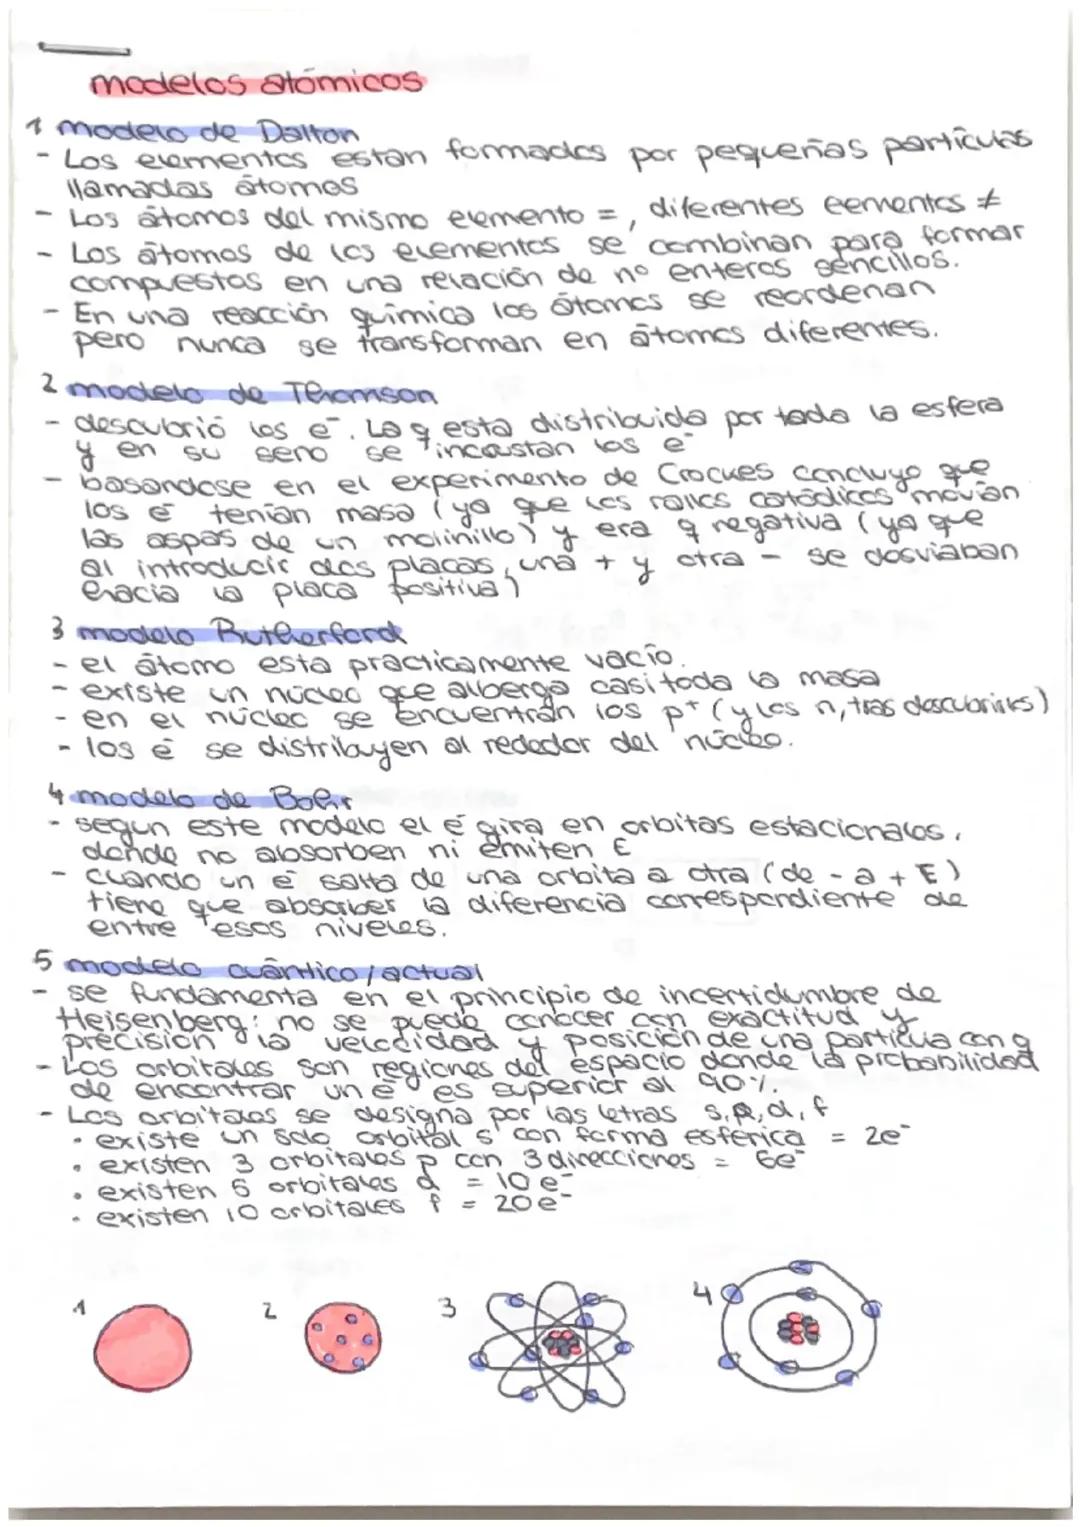 modelos atómicos
1 modelo de Dalton
- Los elementos estan formados por pequeñas partículas
llamadas átomos
- Los átomos del mismo elemento =, diferentes eementos ≠
- Los átomos de los elementos se combinan para formar
compuestos en una relación de nº enteros sencillos.
- En una reacción química los átomos se reordenan
pero nunca se transforman en átomos diferentes.
2 modelo de Thomson
- descubrió los e⁻. La q esta distribuida por toda la esfera
y en su seno se incrustan los e⁻
- basandose en el experimento de Crocues concluyo que
los e⁻ tenian masa (ya que los rallos catódicos movian
las aspas de un molinillo) y era q negativa (ya que
al introducir dos placas, una + y otra - se desviaban
hacia la placa positiva)
3 modelo Rutherford
- el átomo esta practicamente vacío.
- existe un núcleo que alberga casi toda la masa
- en el núcleo se encuentran los p⁺ (y los n, tras descubrirlos)
- los e⁻ se distribuyen al rededor del núcleo.
4 modelo de Bohr
- segun este modelo el e⁻ gira en orbitas estacionales,
donde no absorben ni emiten E
- cuando un e⁻ salta de una orbita a otra (de - a + E)
tiene que absorber la diferencia correspondiente de
entre esos niveles.
5 modelo cuántico/actual
- se fundamenta en el principio de incertidumbre de
Heisenberg: no se puede conocer con exactitud y
precisión la velocidad y posición de una partícula con q
- Los orbitales son regiones del espacio donde la probabilidad
de encontrar un e⁻ es superior al 90%.
- Los orbitales se designa por las letras s, p, d, f
· existe un solo orbital s con forma esférica = 2e⁻
· existen 3 orbitales p con 3 direcciones = 6e⁻
· existen 5 orbitales d = 10 e⁻
· existen 10 orbitales f = 20 e⁻
1 2 3 4